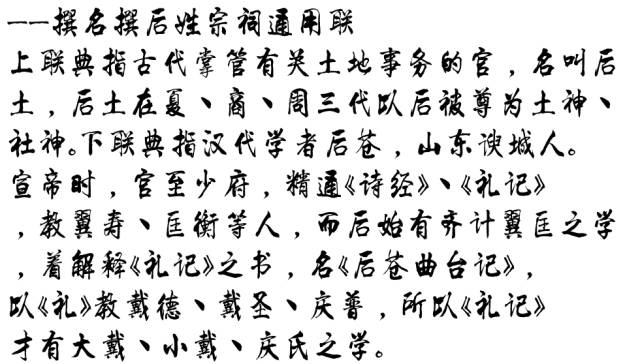 ——撰名撰后姓宗祠通用联
上联典指古代掌管有关土地事务的官，名叫后
土，后土在夏、商、周三代以后被尊为土神、
社神。下联典指汉代学者后苍，山东谀城人。
宣帝时，官至少府，精通《诗经》、《礼记》
，教翼寿、匡衡等人，而后始有齐计翼匡之学
，着解释《礼记》之书，名《后苍曲台记》，
以《礼》教戴德、戴圣、庆普，所以《礼记》
才有大戴、小戴、庆氏之学。